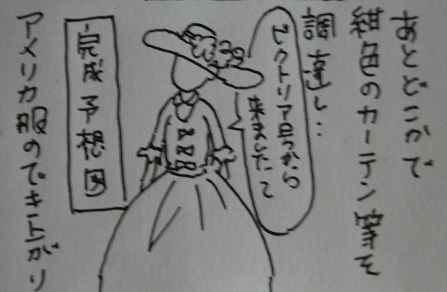 あとどこかで
紺色のカーテン等を
調達し…
ビクトリア号から
来ましたって
完成予想図
アメリカ服のでき上がり